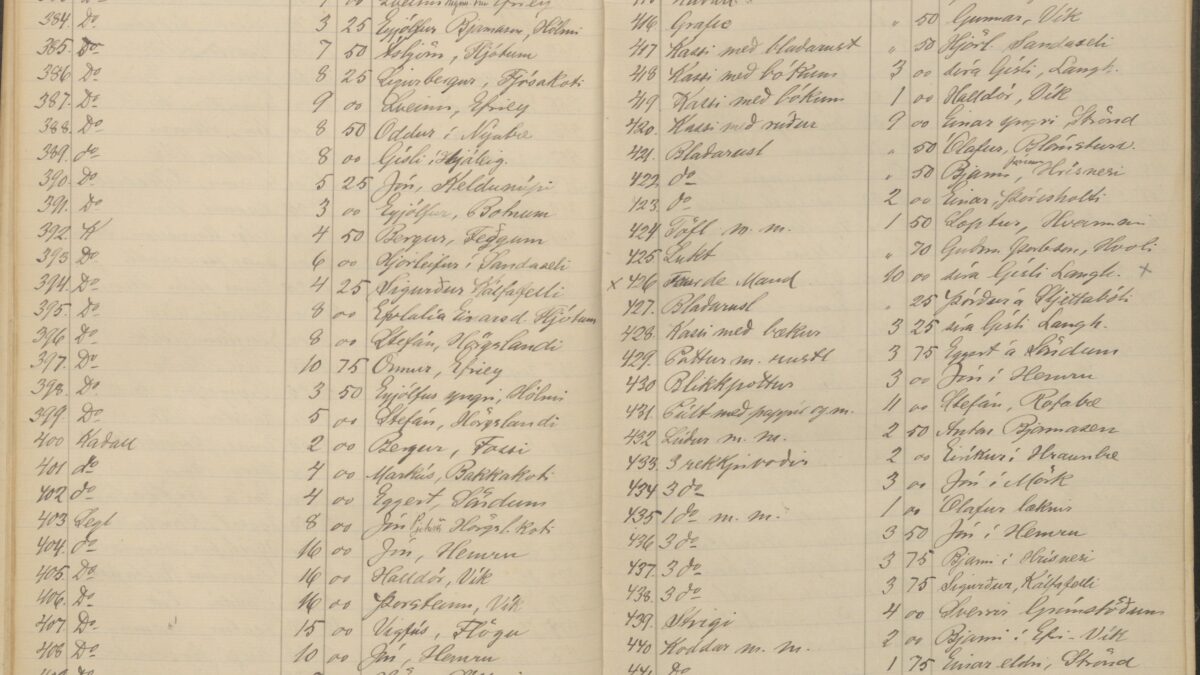 384. Do 3 25 Eyjólfur Bjarnason, Hólmi
385. Do 7 50 Ásbjörn, Hjótum
386. Do 8 25 Sigurbergur, Fjósakoti
387. Do 9 00 Sveinn, Efriey
388. Do 8 50 Oddur í Nýabæ
389. do 8 00 Gísli í
390. Do 5 25 Jón, Keldunúpi
391. Do 3 00 Eyjólfur, Botnum
392. K 4 50 Bergur, Feðgum
393 Do 6 00 Hjörleifur í Sandaseli
394. Do 4 25 Sigurður Kálfafelli
395. Do 8 00 Einarsd. Hjótum
396 Do 8 00 Stefán, Hörgslandi
397. Do 10 75 Ormur, Efriey
398. Do 3 50 Eyjólfur yngri, Hólmi
399 Do 5 00 Stefán, Hörgslandi
400 Kaðall 2 00 Bergur, Fossi
401 do 4 00 Markús, Bakkakoti
402 do 4 00 Eggert, Söndum
403 Segl 8 00 Jón Hörgsl.koti
404. do 16 00 Jón, Hemru
405. Do 16 00 Halldór, Vík
406. Do 16 00 Þorsteinn, Vík
407 Do 15 00 Vigfús, Flögu
408 Do 10 00 Jón, Hemru
416 Grafie " 50 Gunnar, Vík
417 Kassi með bladarust " 50 Hjörl. Sandaseli
418 Kassi með bókum 3 00 síra Gísli, Langh.
419 Kassi með bókum 1 00 Halldór, Vík
420. Kassi með rúður 9 00 Einar yngri Strönd
421. Bladarusl " 50 Ólafur,
422 do " 50 Bjarni, Hrísnesi
423. do 2 00 Einar, Þórisholti
424 Töfl m. m. 1 50 Loptur,
425 Lukt " 70 Guðm. Hvoli
x 426 Mand 10 00 síra Gísli Langh. x
427. Bladarusl " 25 Þórður á Sljettabóli
428. Kassi með bækur 3 25 síra Gísli Langh.
429. Pottur m. rusl 3 75 Eggert á Söndum
430 Blikkpottur 3 00 Jón í Hemru
431. Púlt með pappír og m. 11 00 Stefán, Rofabæ
432. Lúður m. m. 2 50 Anton Bjarnasen
433. 3 rekkjuvoðir 2 00 Eiríkur í Hraunbæ
434 3 do 3 00 Jón í Mörk
435 1 do m. m. 1 00 Ólafur læknir
436 3 do 3 50 Jón í Hemru
437. 3 do 3 75 Bjarni í Hrísnesi
438. 3 do 3 75 Sigurður, Kálfafelli
439. Strigi 4 00 Sverrir Grímstöðum
440 Koddar m. m. 2 00 Bjarni í Efri-Vík
441 Do 1 75 Einar eldri, Strönd